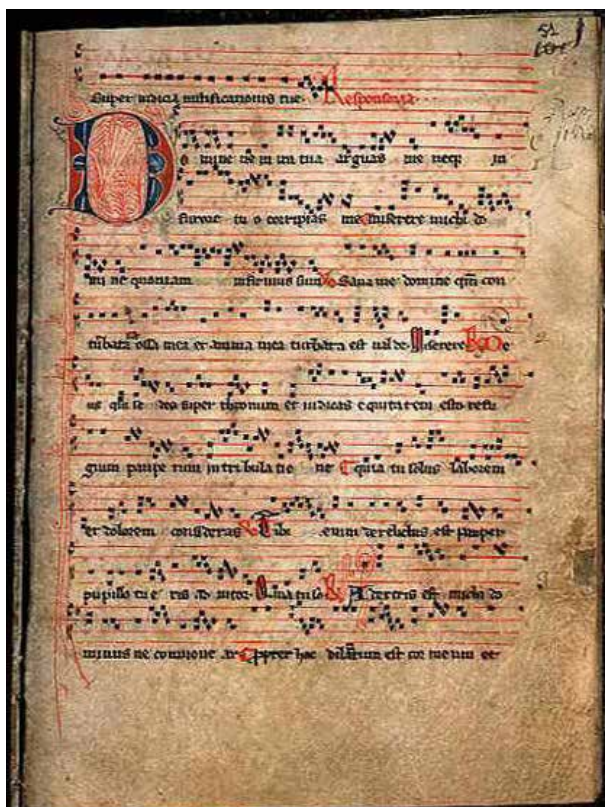 51
super indicia iustificationis tue Responsoria
Domine ne in ira tua arguas me neqz in
furore tuo corripias me Miserere michi do
mi ne quoniam infirmus sum Sana me domine qm con
turbata ossa mea et anima mea turbata est valde Miserere De
us qui se des super thronum et iudicas equitatem esto refu
gium paupe rum in tribula tio ne quia tu solus laborem
et dolorem consideras Tibi enim derelictus est pauper
pupillo tu e ris ad iutor Quia tu so A dextris est michi do
minus ne commoue ar propter hoc dilatatum est cor meum et